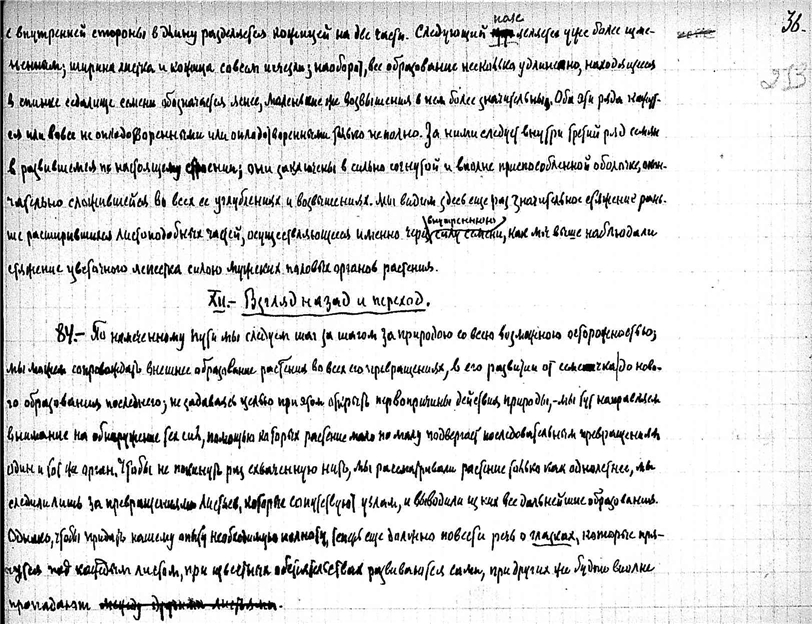 36.
с внутренней стороны в длину разделяется кожицей на две части. Следующий является уже более изме-
213
ненным; ширина листка и кожица совсем исчезла; наоборот, все образование несколько удлинено, находящееся
в спинке седалище семени обозначается яснее, маленькие же возвышения в нем более значительны. Оба эти ряда кажут-
ся или вовсе не оплодотворенными или оплодотворенными только неполно. За ними следует внутри третий ряд семян
в развившемся по настоящему строении; они заключены в сильно согнутой и вполне приспособленной оболочке, окон-
чательно сложившейся во всех ее углублениях и возвышениях. Мы видим здесь еще раз значительное стяжение рань-
ше расширившихся листоподобных частей, осуществляющееся именно через внутреннюю силу семени, как мы выше наблюдали
стяжение цветочного лепестка силою мужских половых органов растения.
XII.- Взгляд назад и переход.
84.- По намеченному пути мы следуем шаг за шагом за природою со всею возможною осторожностью;
мы можем сопровождать внешнее образование растения во всех его превращениях, в его развитии от семечка до ново-
го образования последнего; не задаваясь целью при этом открыть первопричины действия природы, - мы тут направляем
внимание на обнаружение тех сил, помощью которых растение мало по малу подвергает последовательным превращениям
один и тот же орган. Чтобы не покинуть раз схваченную нить, мы рассматривали растение только как однолетнее, мы
следили лишь за превращениями листьев, которые сопутствуют узлам, и выводили из них все дальнейшие образования.
Однако, чтобы придать нашему опыту необходимую полноту, теперь еще должно повести речь о глазках, которые пря-
чутся под каждым листом, при известных обстоятельствах развиваются сами, при других же будто вполне
пропадают между другими листьями.